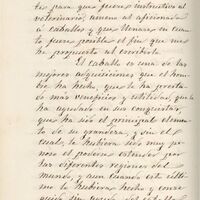 tes para que fuera instructivo al
veterinario, ameno al aficionado
á caballos y que llenara en cuan
to fuera posible el fin que me
he propuesto al escribirla.
El caballo es una de las
mejores adquisiciones que el hom
bre ha hecho, que le ha presta
do mas beneficios y utilidad, que le
ha ayudado en sus conquistas,
que ha sido el principal elemen
to de su grandeza, y sin el
cual, le hubiera sido muy pe
noso el poderse estender por
las diferentes regiones del
mundo, y aun cuando este últi
mo lo hubiera hecho y conse
guido sin ayuda del caballo